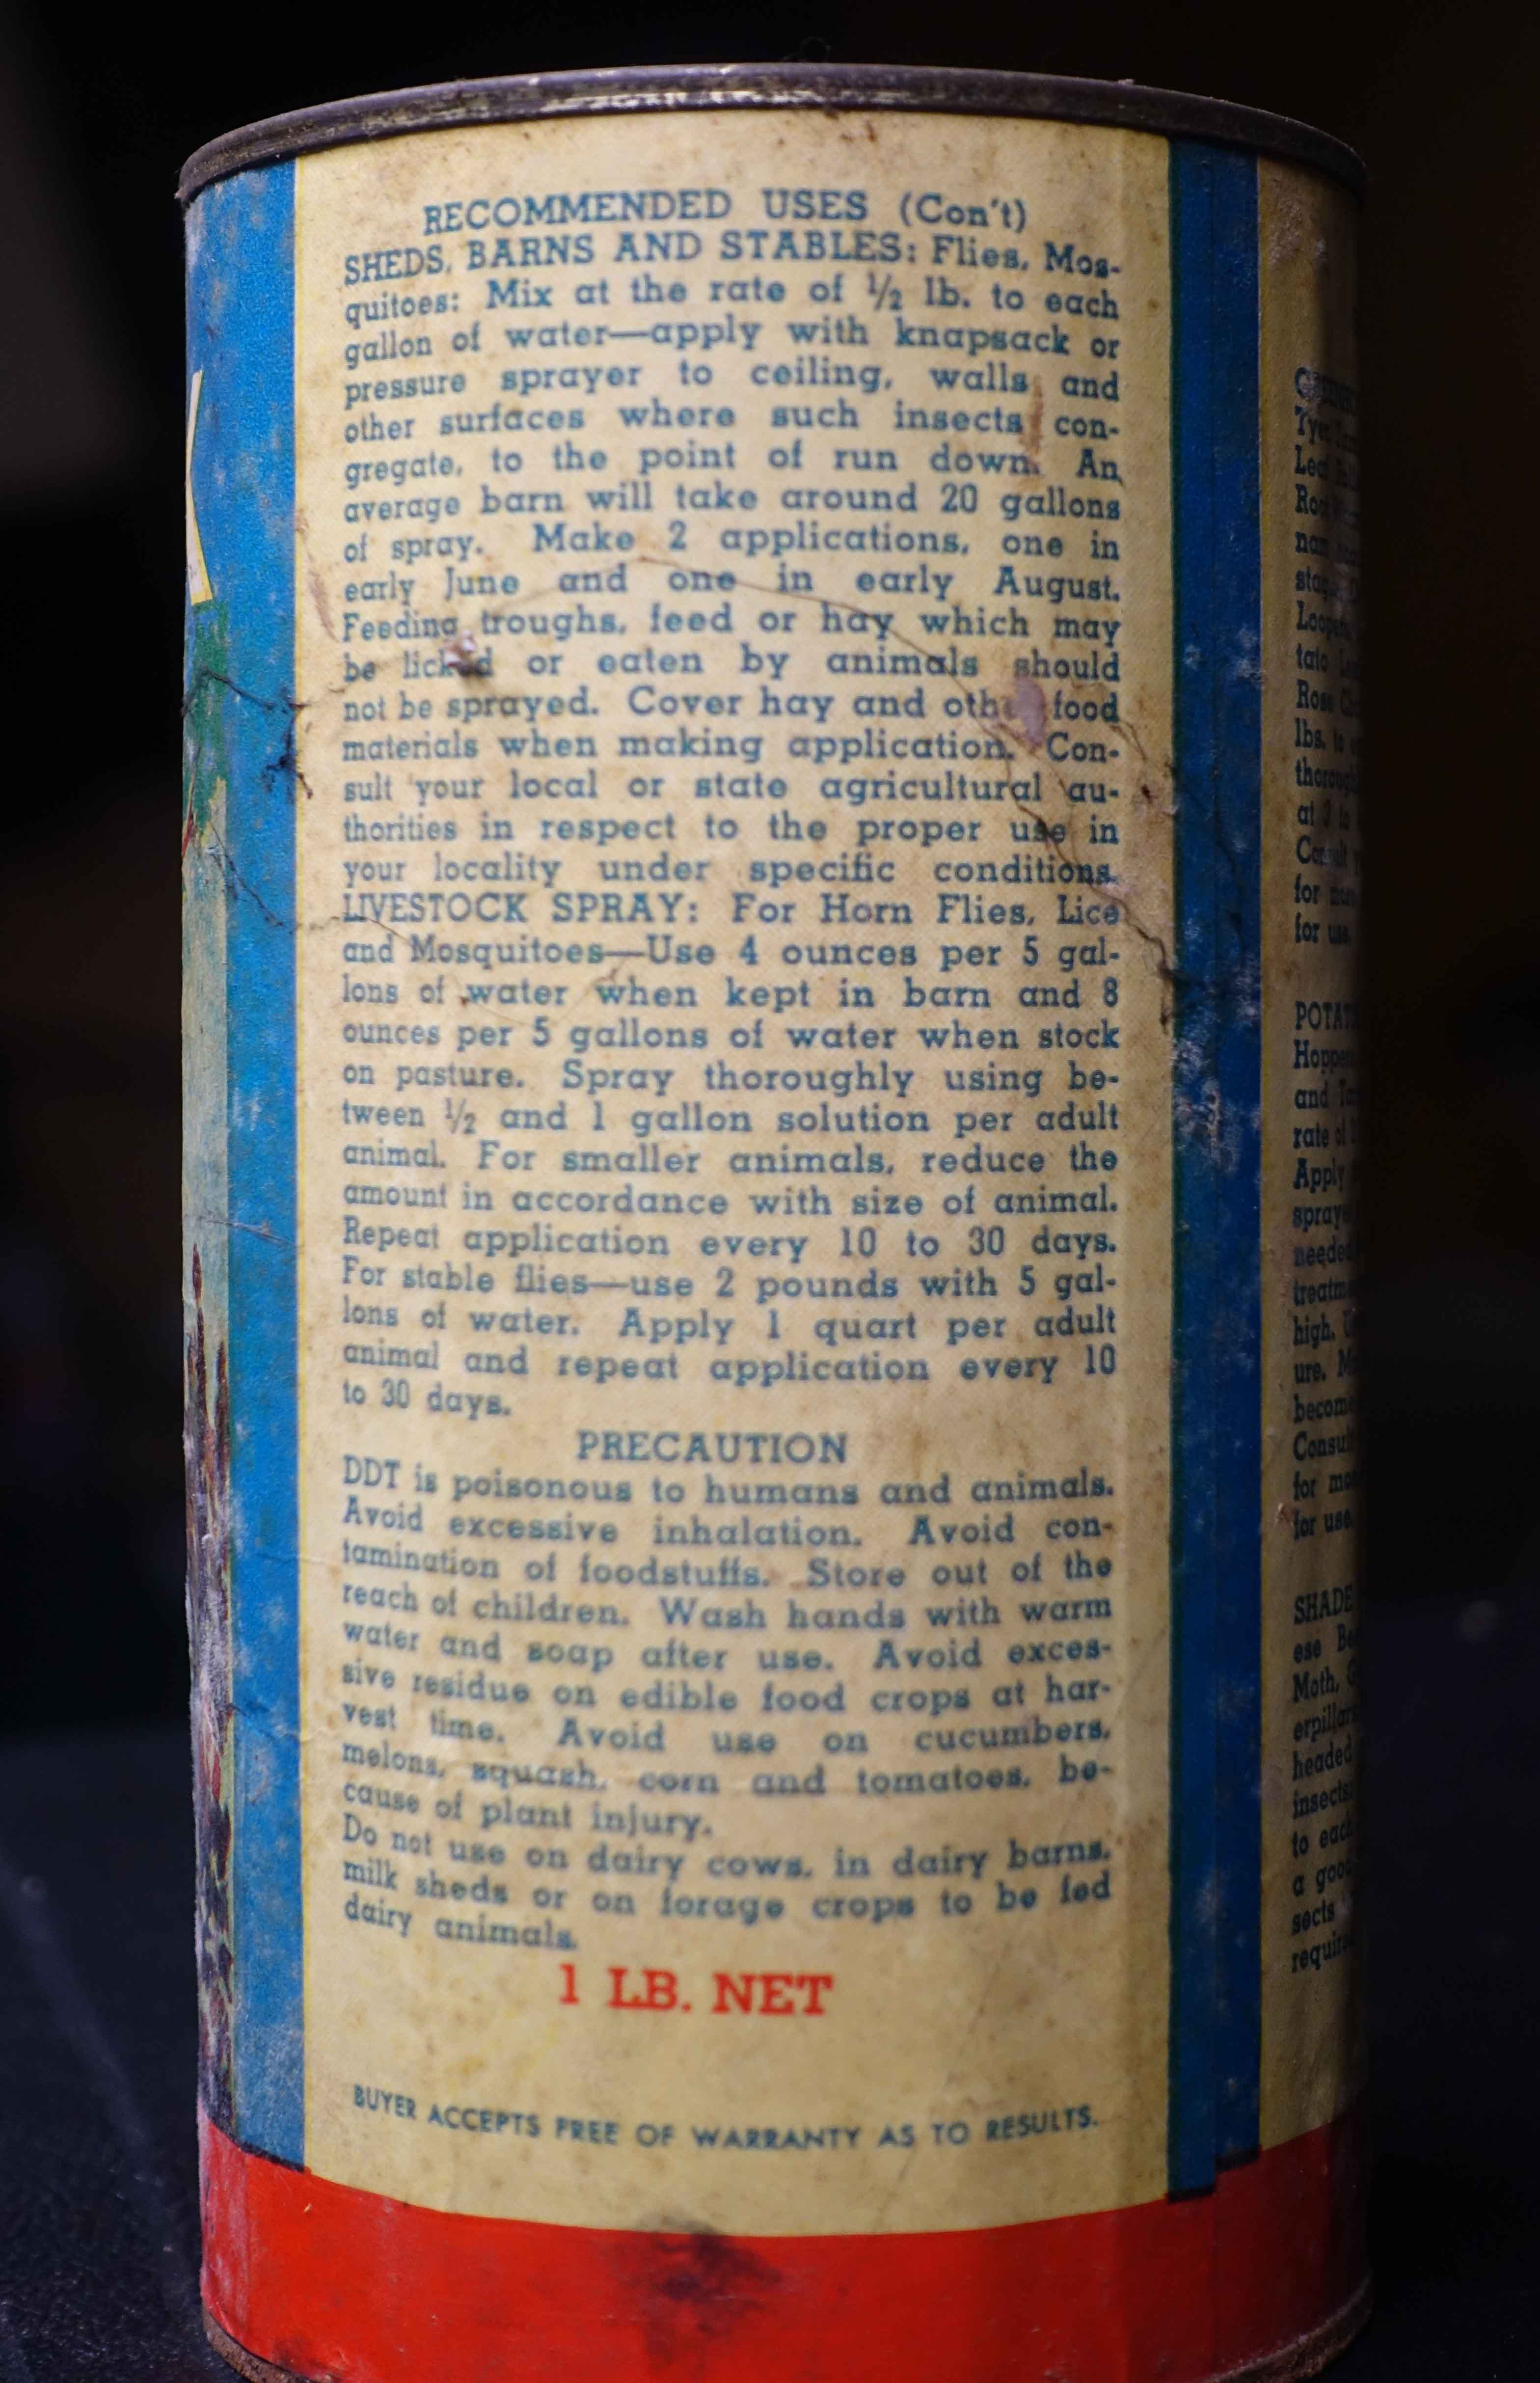 RECOMMENDED USES (Con't)
SHEDS, BARNS AND STABLES: Flies, Mos-
quitoes: Mix at the rate of ½ lb. to each
gallon of water—apply with knapsack or
pressure sprayer to ceiling, walls and
other surfaces where such insects con-
gregate, to the point of run down. An
average barn will take around 20 gallons
of spray. Make 2 applications, one in
early June and one in early August.
Feeding troughs, feed or hay which may
be licked or eaten by animals should
not be sprayed. Cover hay and other food
materials when making application. Con-
sult your local or state agricultural au-
thorities in respect to the proper use in
your locality under specific conditions.
LIVESTOCK SPRAY: For Horn Flies, Lice
and Mosquitoes—Use 4 ounces per 5 gal-
lons of water when kept in barn and 8
ounces per 5 gallons of water when stock
on pasture. Spray thoroughly using be-
tween ½ and 1 gallon solution per adult
animal. For smaller animals, reduce the
amount in accordance with size of animal.
Repeat application every 10 to 30 days.
For stable flies—use 2 pounds with 5 gal-
lons of water. Apply 1 quart per adult
animal and repeat application every 10
to 30 days.
PRECAUTION
DDT is poisonous to humans and animals.
Avoid excessive inhalation. Avoid con-
tamination of foodstuffs. Store out of the
reach of children. Wash hands with warm
water and soap after use. Avoid exces-
sive residue on edible food crops at har-
vest time. Avoid use on cucumbers,
melons, squash, corn and tomatoes, be-
cause of plant injury.
Do not use on dairy cows, in dairy barns,
milk sheds or on forage crops to be fed
dairy animals.
1 LB. NET
BUYER ACCEPTS FREE OF WARRANTY AS TO RESULTS.
lbs. to
at 3 to
for use.
and
rate of
Apply
high.
ure.
for
for use.
SHADE
ese
Moth,
headed
insects
to each
a good
sects